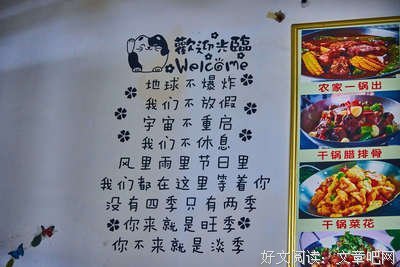 歡迎光臨
Welc me
地球不爆炸
我们不放假
宇宙不重启
我们不休息
风里雨里节日里
我们都在这里等着你
没有四季只有两季
你来就是旺季
你不来就是淡季
农家一锅出
干锅腊排骨
干锅菜花
好文阅读：文章吧网